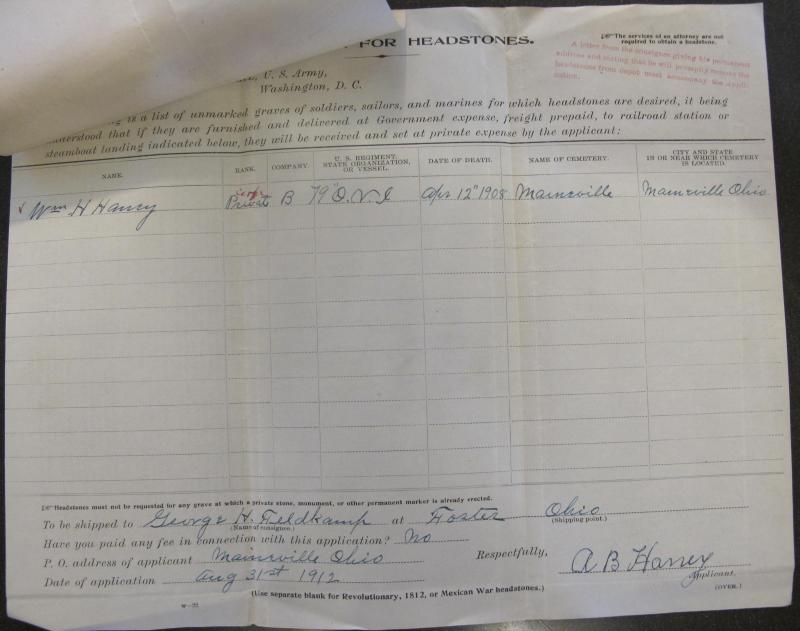 FOR HEADSTONES.
☞ The services of an attorney are not
required to obtain a headstone.
A letter from the consignee giving his permanent
address and stating that he will promptly remove the
headstones from depot must accompany the appli-
cation.
U. S. Army,
Washington, D. C.
is a list of unmarked graves of soldiers, sailors, and marines for which headstones are desired, it being
understood that if they are furnished and delivered at Government expense, freight prepaid, to railroad station or
steamboat landing indicated below, they will be received and set at private expense by the applicant:
NAME. RANK. COMPANY. U. S. REGIMENT, STATE ORGANIZATION, OR VESSEL. DATE OF DEATH. NAME OF CEMETERY. CITY AND STATE IN OR NEAR WHICH CEMETERY IS LOCATED.
Corp
Wm H Haney Private B 79 O.V.I Apr 12" 1908 Maineville Maineville Ohio
☞ Headstones must not be requested for any grave at which a private stone, monument, or other permanent marker is already erected.
To be shipped to George H. Feldkamp at Foster Ohio
(Name of consignee.) (Shipping point.)
Have you paid any fee in connection with this application? No
P. O. address of applicant Maineville Ohio Respectfully,
A B Haney
Date of application Aug 31st 1912 Applicant.
(Use separate blank for Revolutionary, 1812, or Mexican War headstones.) (OVER.)